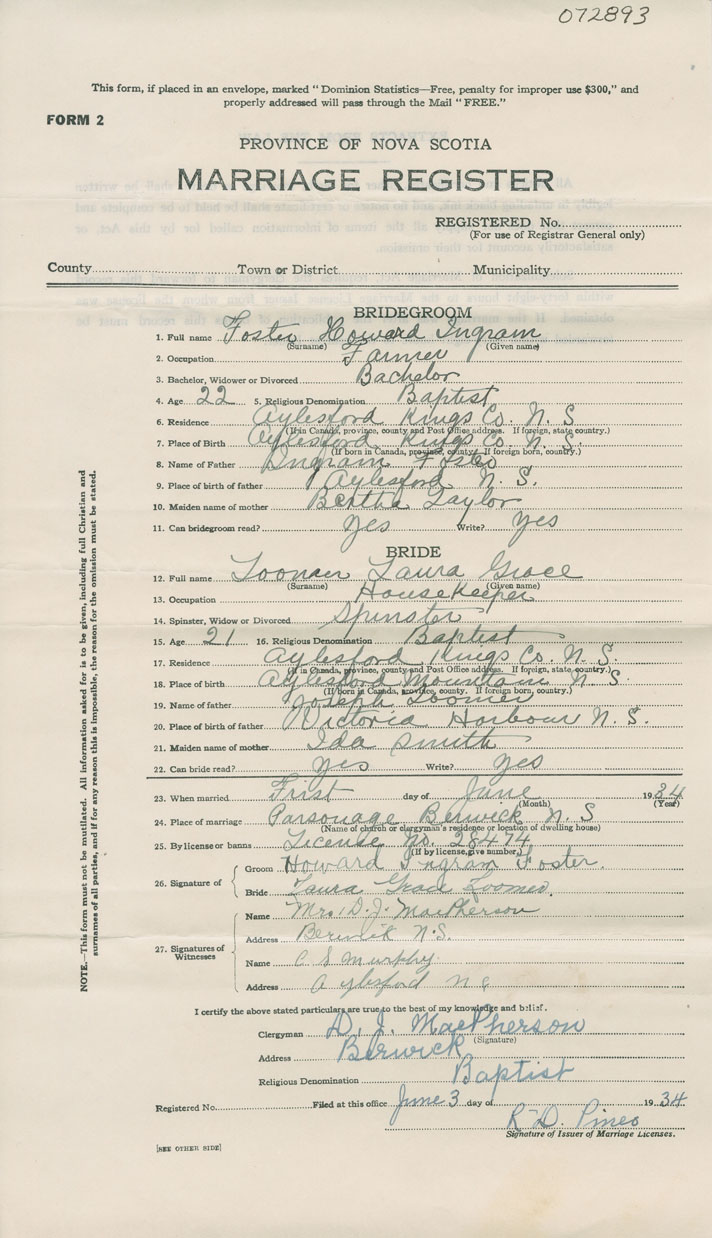 072893
This form, if placed in an envelope, marked "Dominion Statistics—Free, penalty for improper use $300," and
properly addressed will pass through the Mail "FREE."
FORM 2
PROVINCE OF NOVA SCOTIA
MARRIAGE REGISTER
REGISTERED No.
(For use of Registrar General only)
County Town or District Municipality
BRIDEGROOM
1. Full name Foster Howard Ingram
(Surname) (Given name)
2. Occupation Farmer
3. Bachelor, Widower or Divorced Bachelor
4. Age 22 5. Religious Denomination Baptist
6. Residence Aylesford Kings Co. N. S
(If in Canada, province, county and Post Office address. If foreign, state country.)
7. Place of Birth Aylesford Kings Co. N. S.
(If born in Canada, province, county. If foreign born, country.)
8. Name of Father Ingram Foster
9. Place of birth of father Aylesford N. S.
10. Maiden name of mother Bertha Taylor
11. Can bridegroom read? Yes Write? Yes
BRIDE
12. Full name Loomer Laura Grace
(Surname) (Given name)
13. Occupation Housekeeper
14. Spinster, Widow or Divorced Spinster
15. Age 21 16. Religious Denomination Baptist
17. Residence Aylesford Kings Co. N. S.
(If in Canada, province, county and Post Office address. If foreign, state country.)
18. Place of birth Aylesford Mountain N. S
(If born in Canada, province, county. If foreign born, country.)
19. Name of father Joseph Loomer
20. Place of birth of father Victoria Harbour N. S.
21. Maiden name of mother Ida Smith
22. Can bride read? Yes Write? Yes
23. When married Frist day of June 1934
(Month) (Year)
24. Place of marriage Parsonage Berwick N. S
(Name of church or clergyman's residence or location of dwelling house)
25. By license or banns License No. 28474
(If by license, give number)
26. Signature of
Groom Howard Ingram Foster.
Bride Laura Grace Loomer.
27. Signatures of Witnesses
Name Mrs. D. J. MacPherson
Address Berwick N.S.
Name C S Murphy
Address Aylesford N S
I certify the above stated particulars are true to the best of my knowledge and belief.
Clergyman D. J. MacPherson
(Signature)
Address Berwick
Religious Denomination Baptist
Registered No. Filed at this office June 3 day of 1934
R. D. Pineo
Signature of Issuer of Marriage Licenses.
[SEE OTHER SIDE]
NOTE.—This form must not be mutilated. All information asked for is to be given, including full Christian and
surnames of all parties, and if for any reason this is impossible, the reason for the omission must be stated.